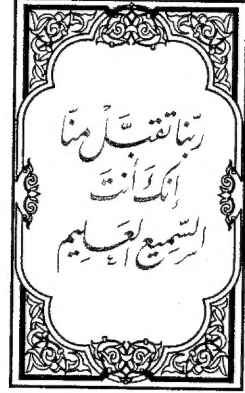 ربّنا تقبَّلْ منّا
إنكَ أنتَ
السّميع العَليم